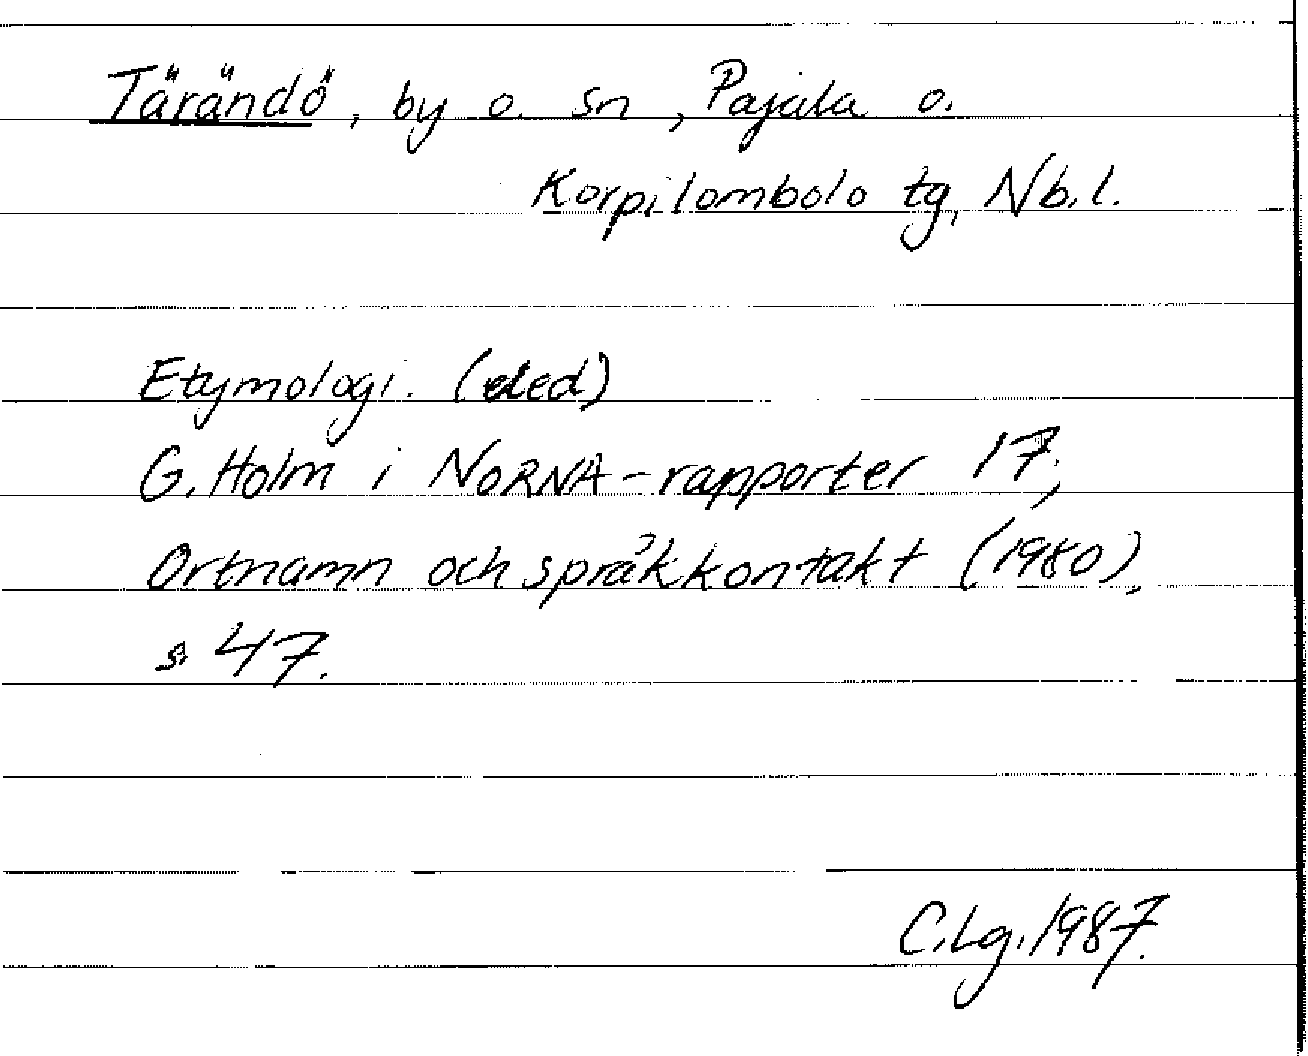 Tärändö, by o. sn, Pajala o.
Korpilombolo tg, Nb.l.
Etymologi. (eled)
G. Holm i NORNA-rapporter 17,
Ortnamn och språkkontakt (1980),
s. 47.
C.Lg. 1987.